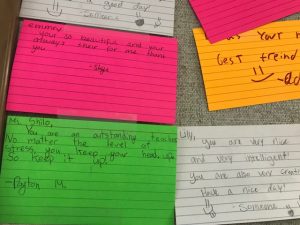 a good day!
Someone
emmry
your so beautiful and your
always their for me thank
you
-Skye
as your
best freind
Ms. Shilo,
You are an outstanding teacher
No matter the level of
stress, you keep your head up
So keep it up!
-Payton M.
Lilly,
you are very nice
and very intelligent!
you are also very creative
Have a nice day!
-Someone